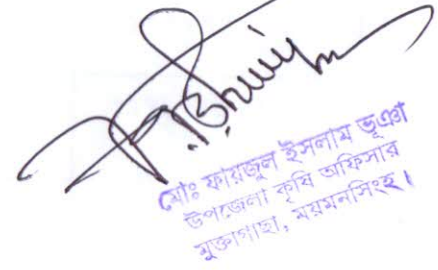 মোঃ ফায়জুল ইসলাম ভূঞা
উপজেলা কৃষি অফিসার
মুক্তাগাছা, ময়মনসিংহ।